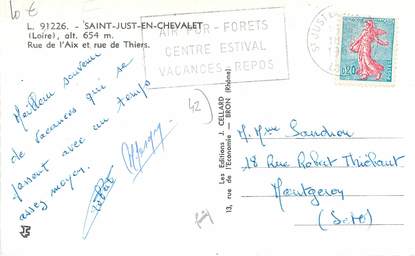 10 €
L. 91226. - SAINT-JUST-EN-CHEVALET
(Loire), alt. 654 m.
Rue de l'Aix et rue de Thiers.
AIR PUR - FORETS
CENTRE ESTIVAL
VACANCES - REPOS
ST JUST
0,20
Meilleur souvenir
de vacances qui se
passent avec un temps
assez moyen.
42
Les Editions J. CELLARD
13, rue de l'Economie - BRON (Rhône)
M. Mme Sandron
18 Rue Robert Thiébaut
Montgeron
(S&O)